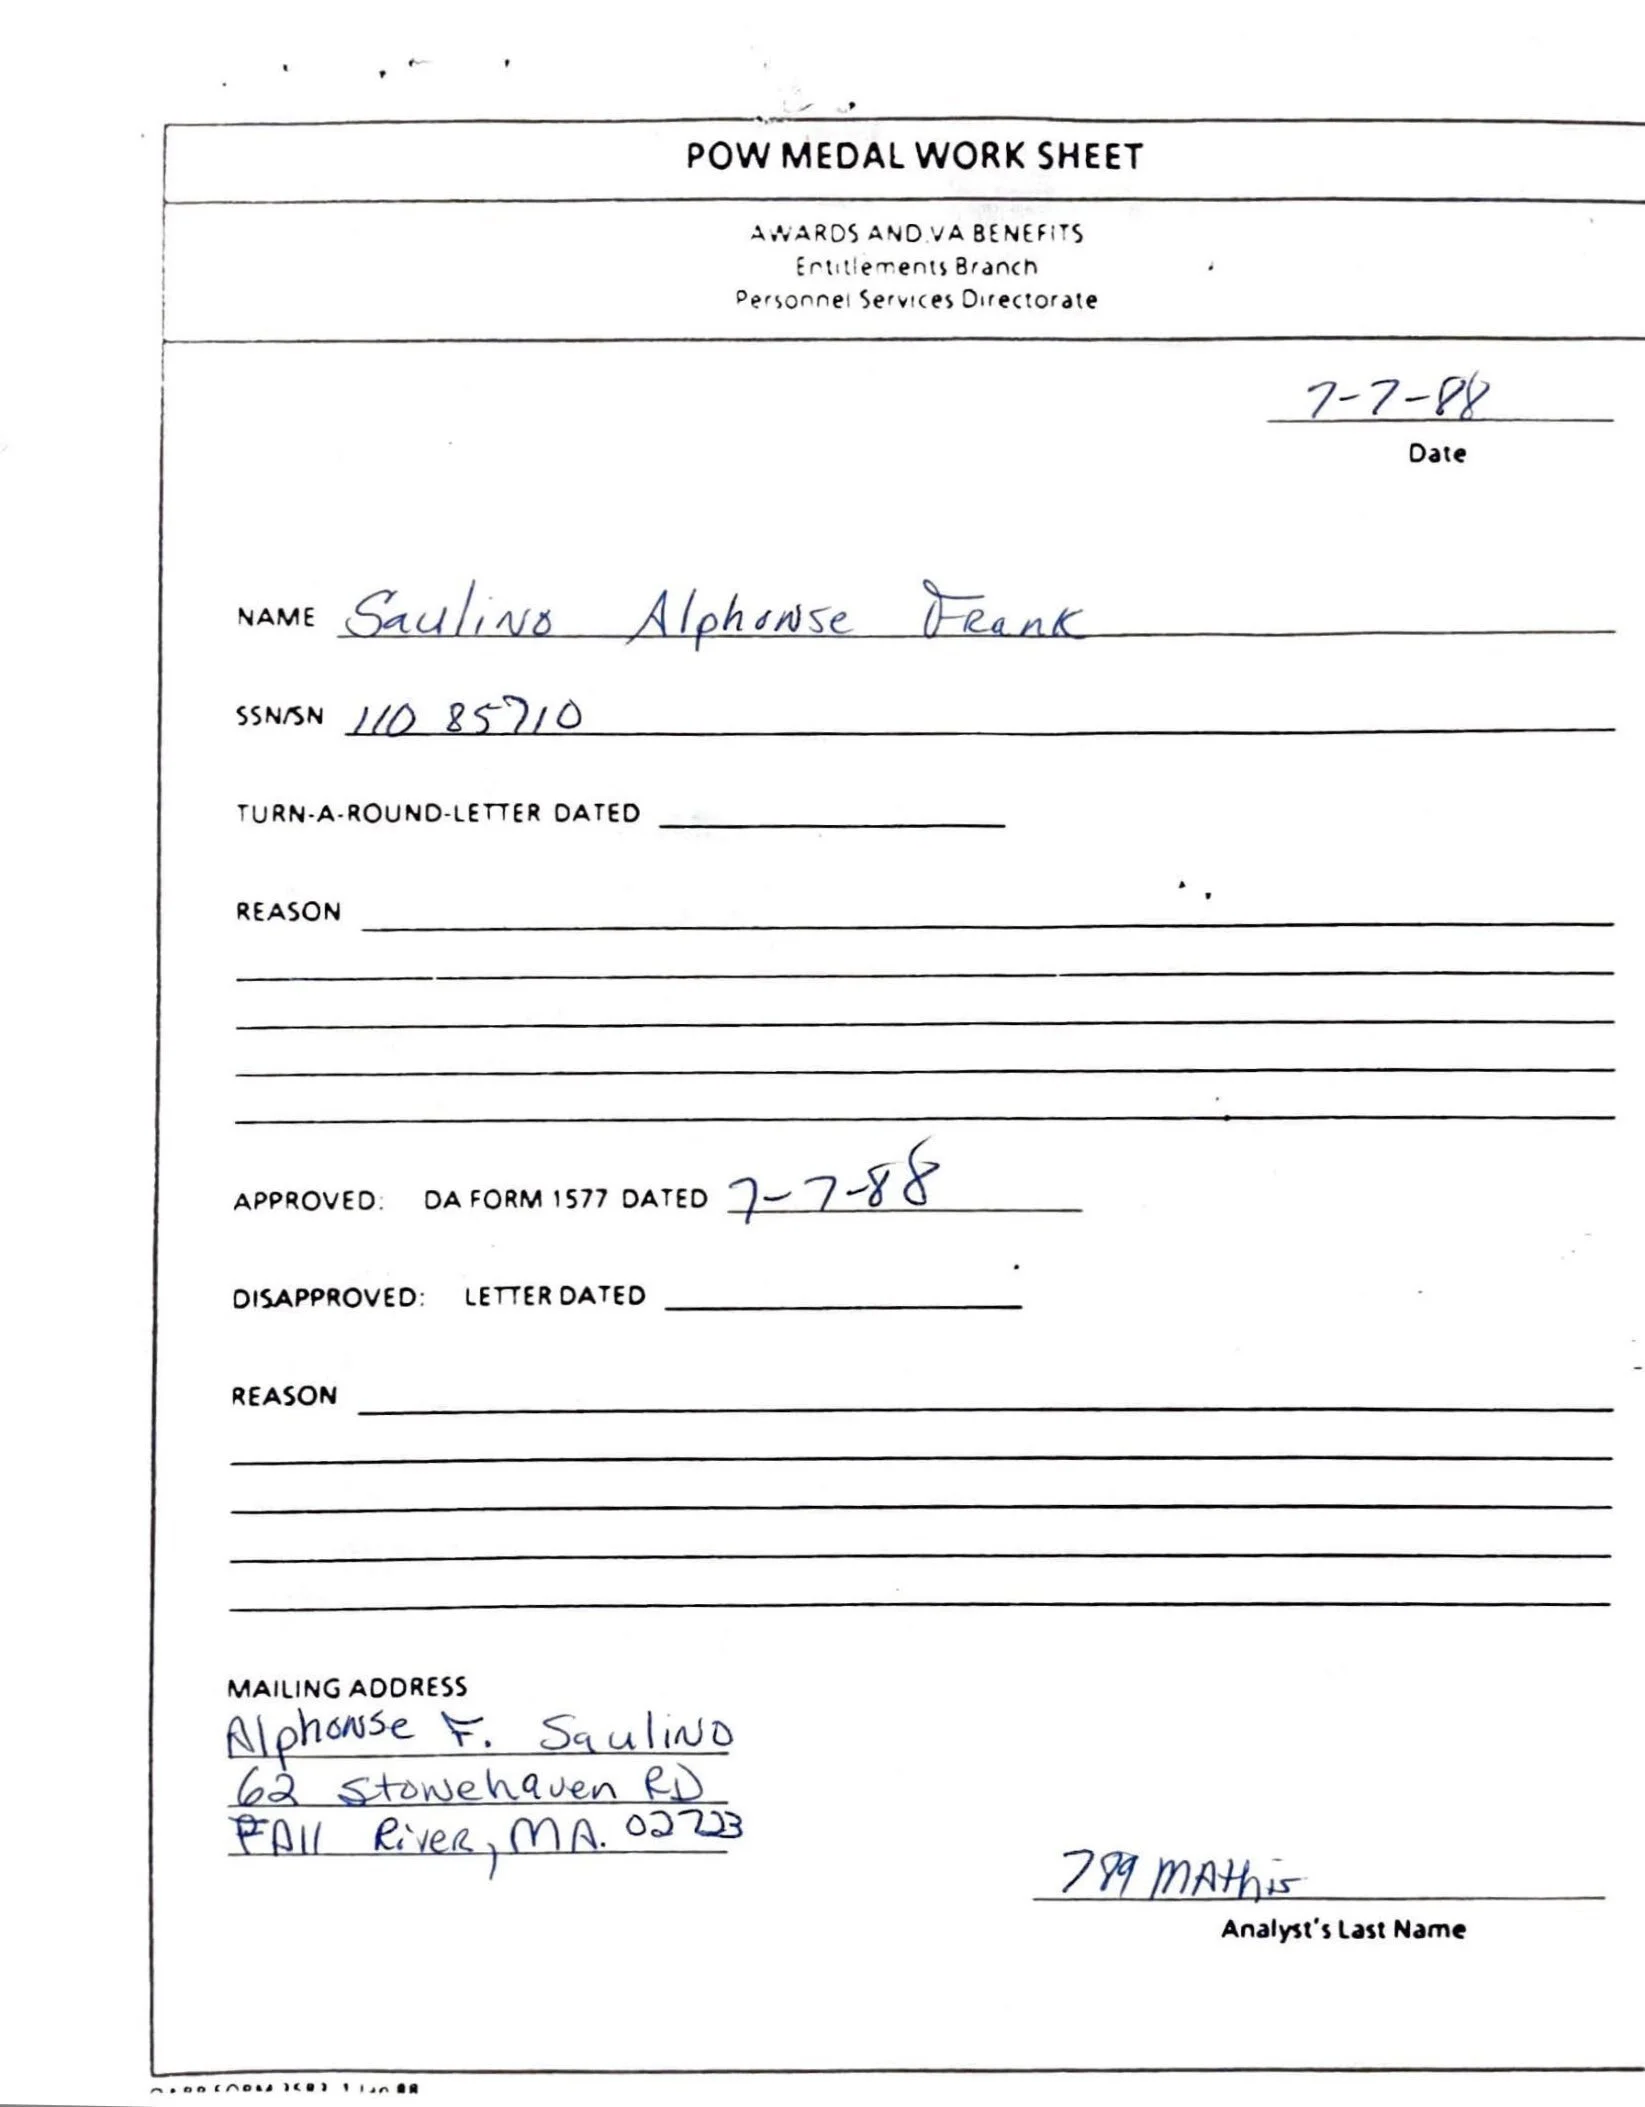 POW MEDAL WORK SHEET
AWARDS AND VA BENEFITS
Entitlements Branch
Personnel Services Directorate
7-7-88
Date
NAME Saulino Alphonse Frank
SSN/SN 110 85710
TURN-A-ROUND-LETTER DATED
REASON
APPROVED: DA FORM 1577 DATED 7-7-88
DISAPPROVED: LETTER DATED
REASON
MAILING ADDRESS
Alphonse F. Saulino
62 Stonehaven RD
FAll River, MA. 02723
789 MAthis
Analyst's Last Name